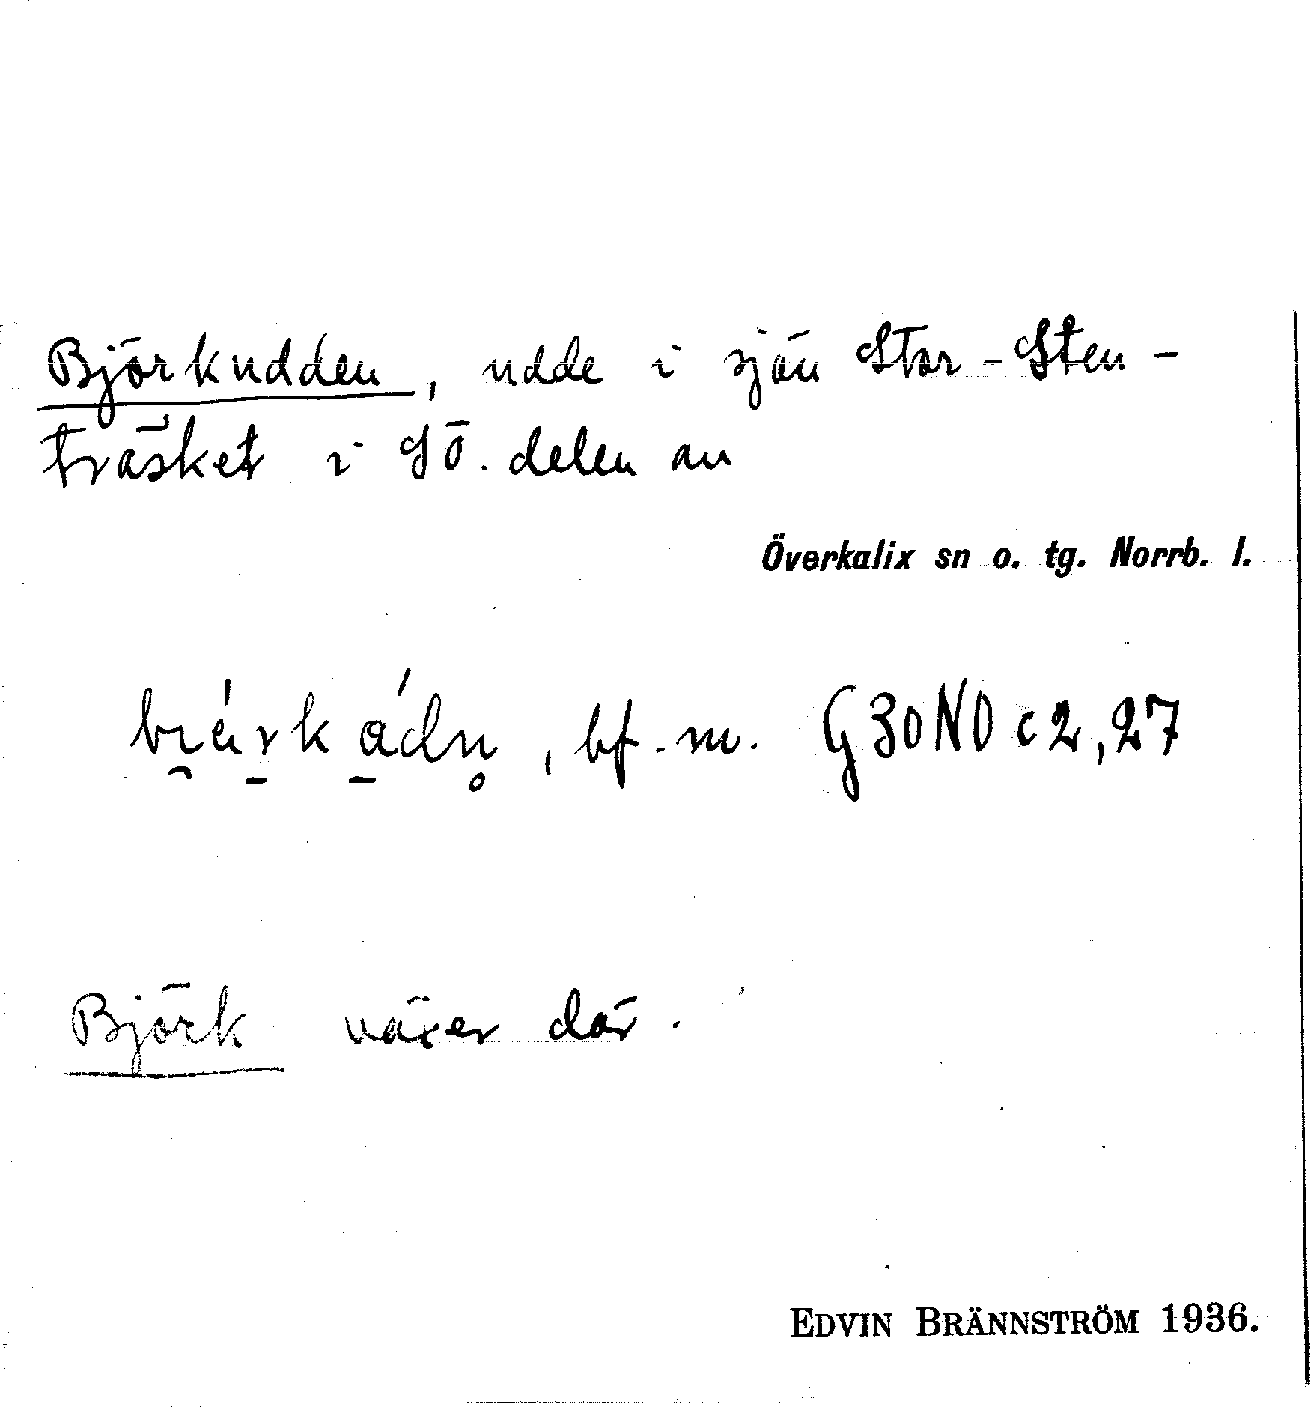 Björkudden, udde i sjön Stor-Sten-
träsket i SÖ. delen av
Överkalix sn o. tg. Norrb. l.
bi̯árkádn̥, bf. m. G30NO c2,27
Björk växer där.
EDVIN BRÄNNSTRÖM 1936.